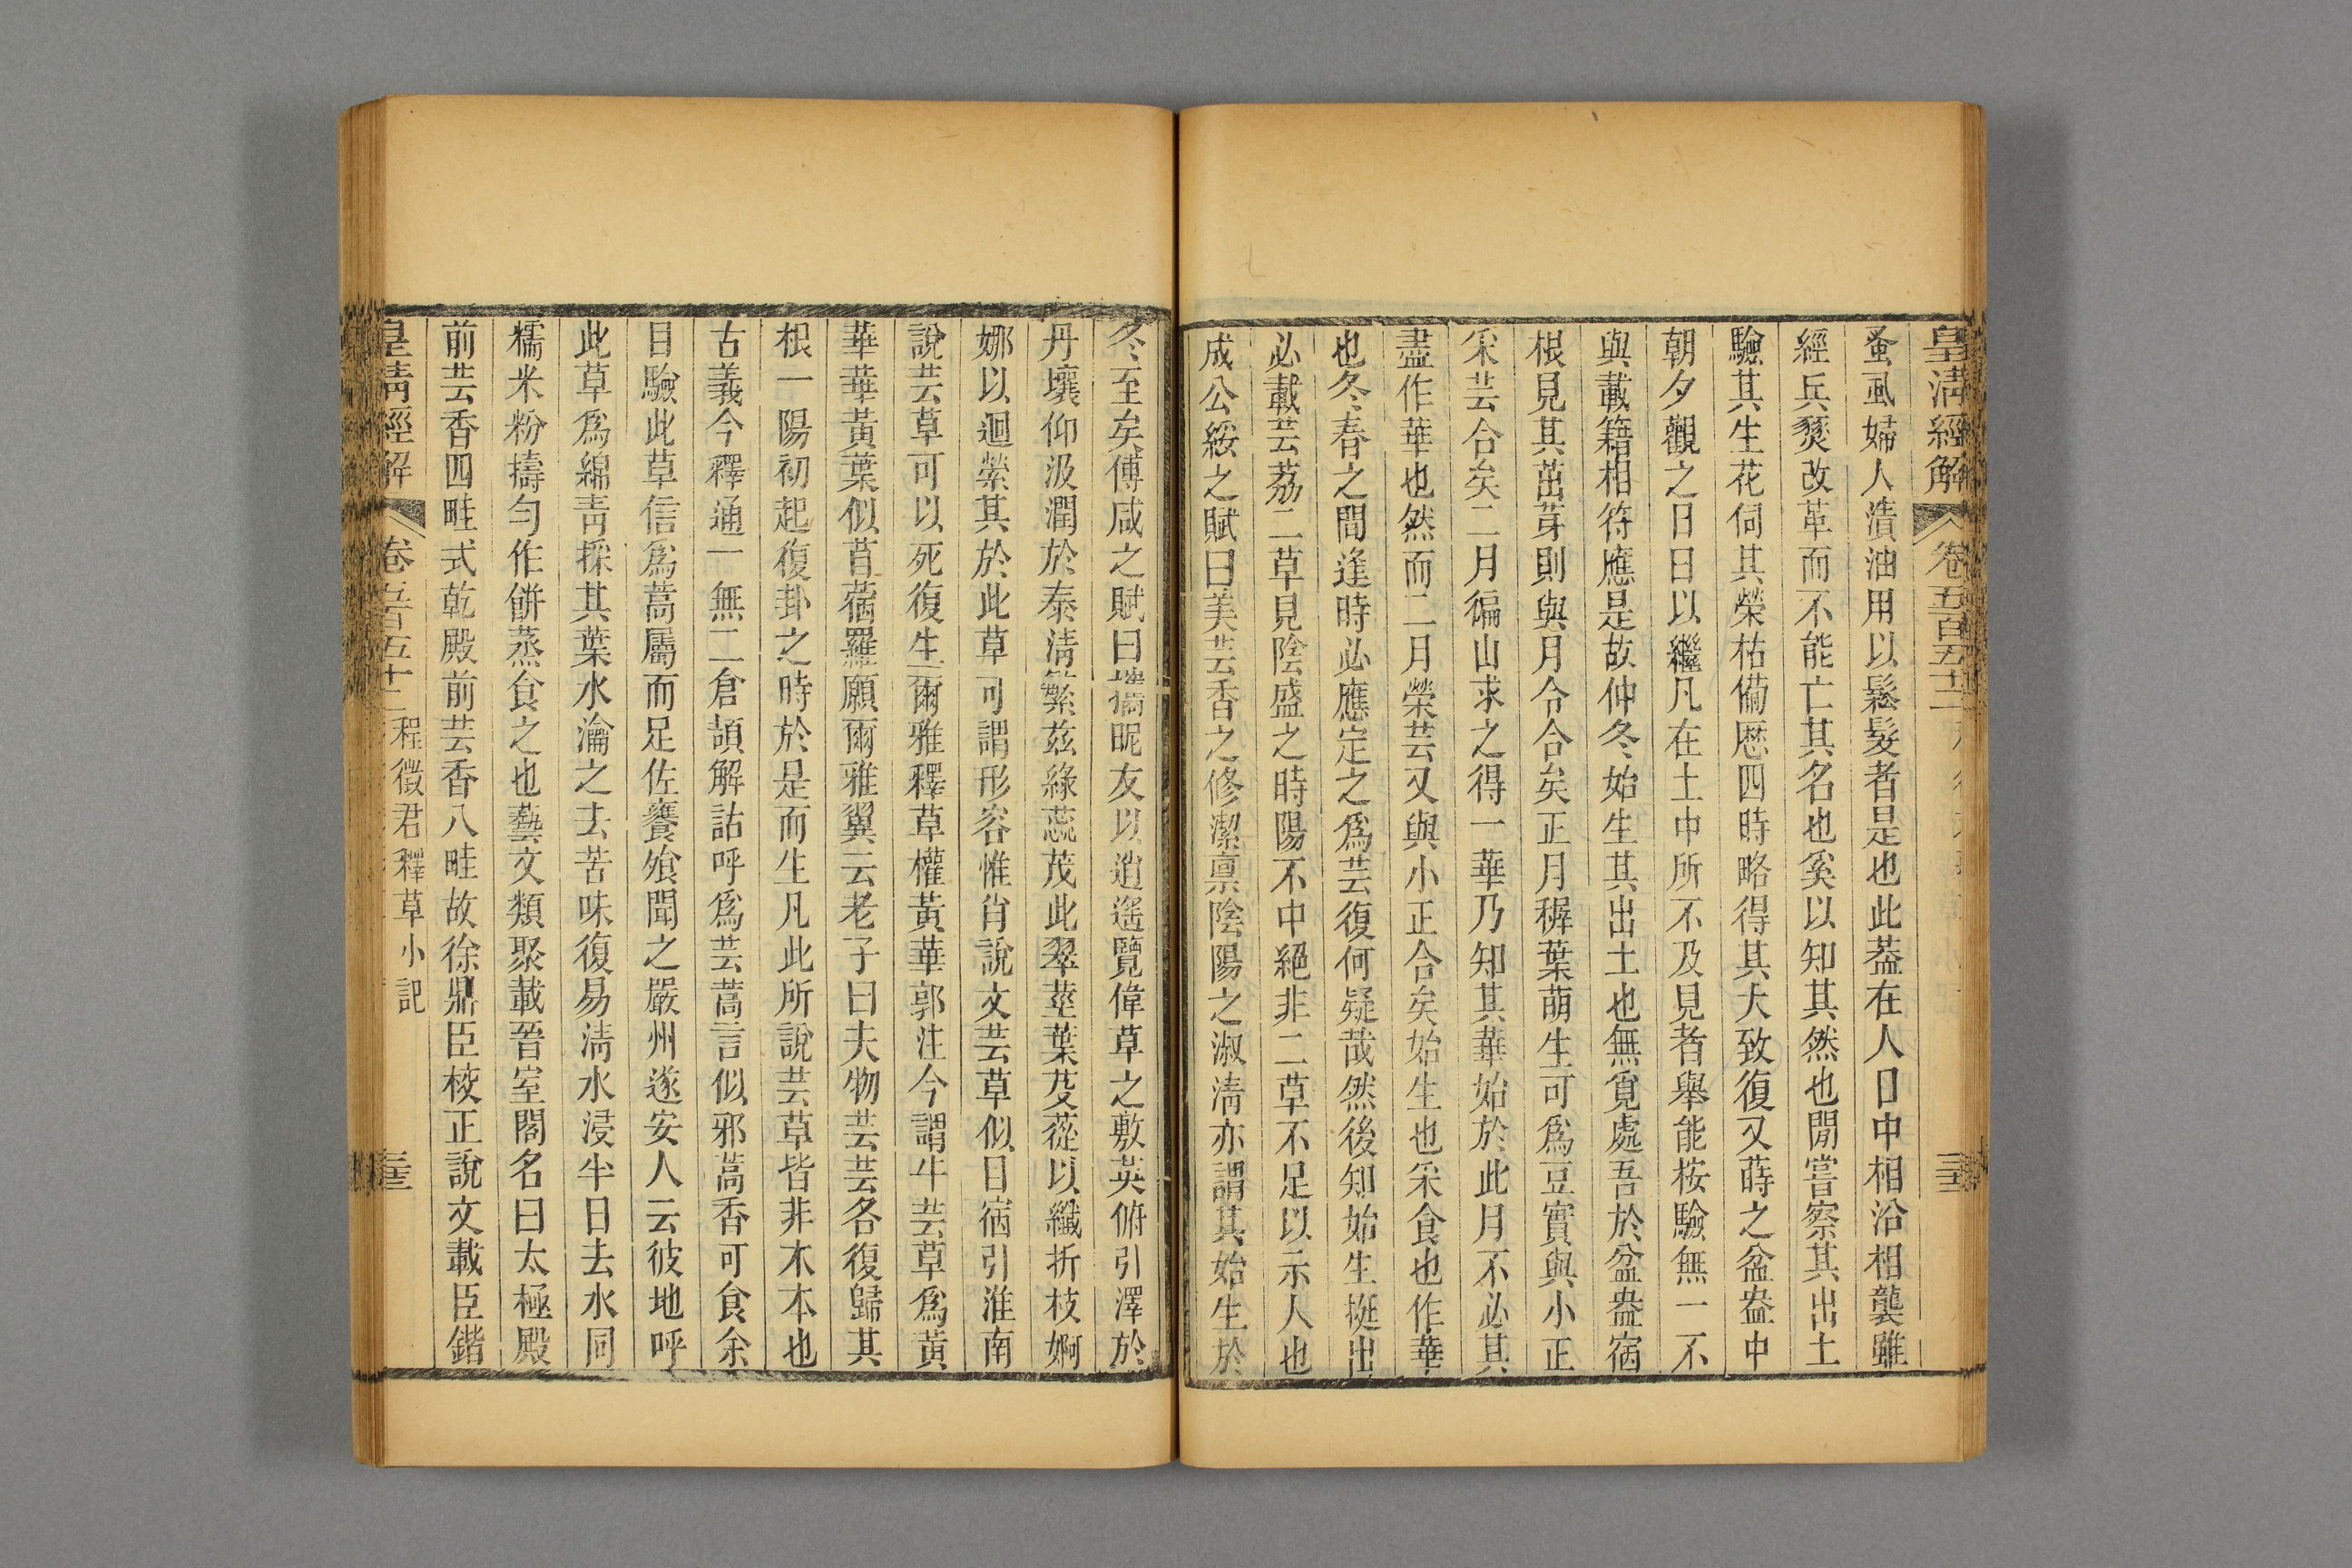 皇清經解 卷五百五十二
蚤虱婦人漬油用以鬆髮者是也此葢在人日中相沿相襲雖
經兵燹改革而不能亡其名也奚以知其然也閒嘗察其出土
驗其生花伺其榮枯僃厯四時略得其大致復又蒔之盆盎中
朝夕觀之日日以繼凡在土中所不及見者舉能桉驗無一不
與載籍相符應是故仲冬始生其出土也無覓處吾於盆盎宿
根見其茁芽則與月令合矣正月穉葉萌生可爲豆實與小正
采芸合矣二月徧山求之得一華乃知其華始於此月不必其
盡作華也然而二月榮芸又與小正合矣始生也采食也作華
也冬春之間逢時必應定之爲芸復何疑哉然後知始生挺出
必載芸荔二草見陰盛之時陽不中絕非二草不足以示人也
成公綏之賦曰美芸香之修潔禀陰陽之淑清亦謂其始生於
冬至矣傅咸之賦曰攜昵友以逍遙覽偉草之敷英俯引澤於
丹壤仰汲潤於泰清繁茲綠蕊茂此翠莖葉芟蓰以纖折枝婀
娜以迴縈其於此草可謂形容惟肖說文芸草似目宿引淮南
說芸草可以死復生爾雅釋草權黃華郭注今謂牛芸草爲黃
華華黃葉似苜蓿羅願爾雅翼云老子曰夫物芸芸各復歸其
根一陽初起復卦之時於是而生凡此所說芸草皆非木本也
古義今釋通一無二倉頡解詁呼爲芸蒿言似邪蒿香可食余
目驗此草信爲蒿屬而足佐饔飧聞之嚴州遂安人云彼地呼
此草爲綿青採其葉水瀹之去苦味復易清水浸半日去水同
糯米粉擣勻作餅蒸食之也藝文類聚載晉室閣名曰太極殿
前芸香四畦式乾殿前芸香八畦故徐鼎臣校正說文載臣鍇
皇清經解 卷五百五十二 程徵君釋草小記